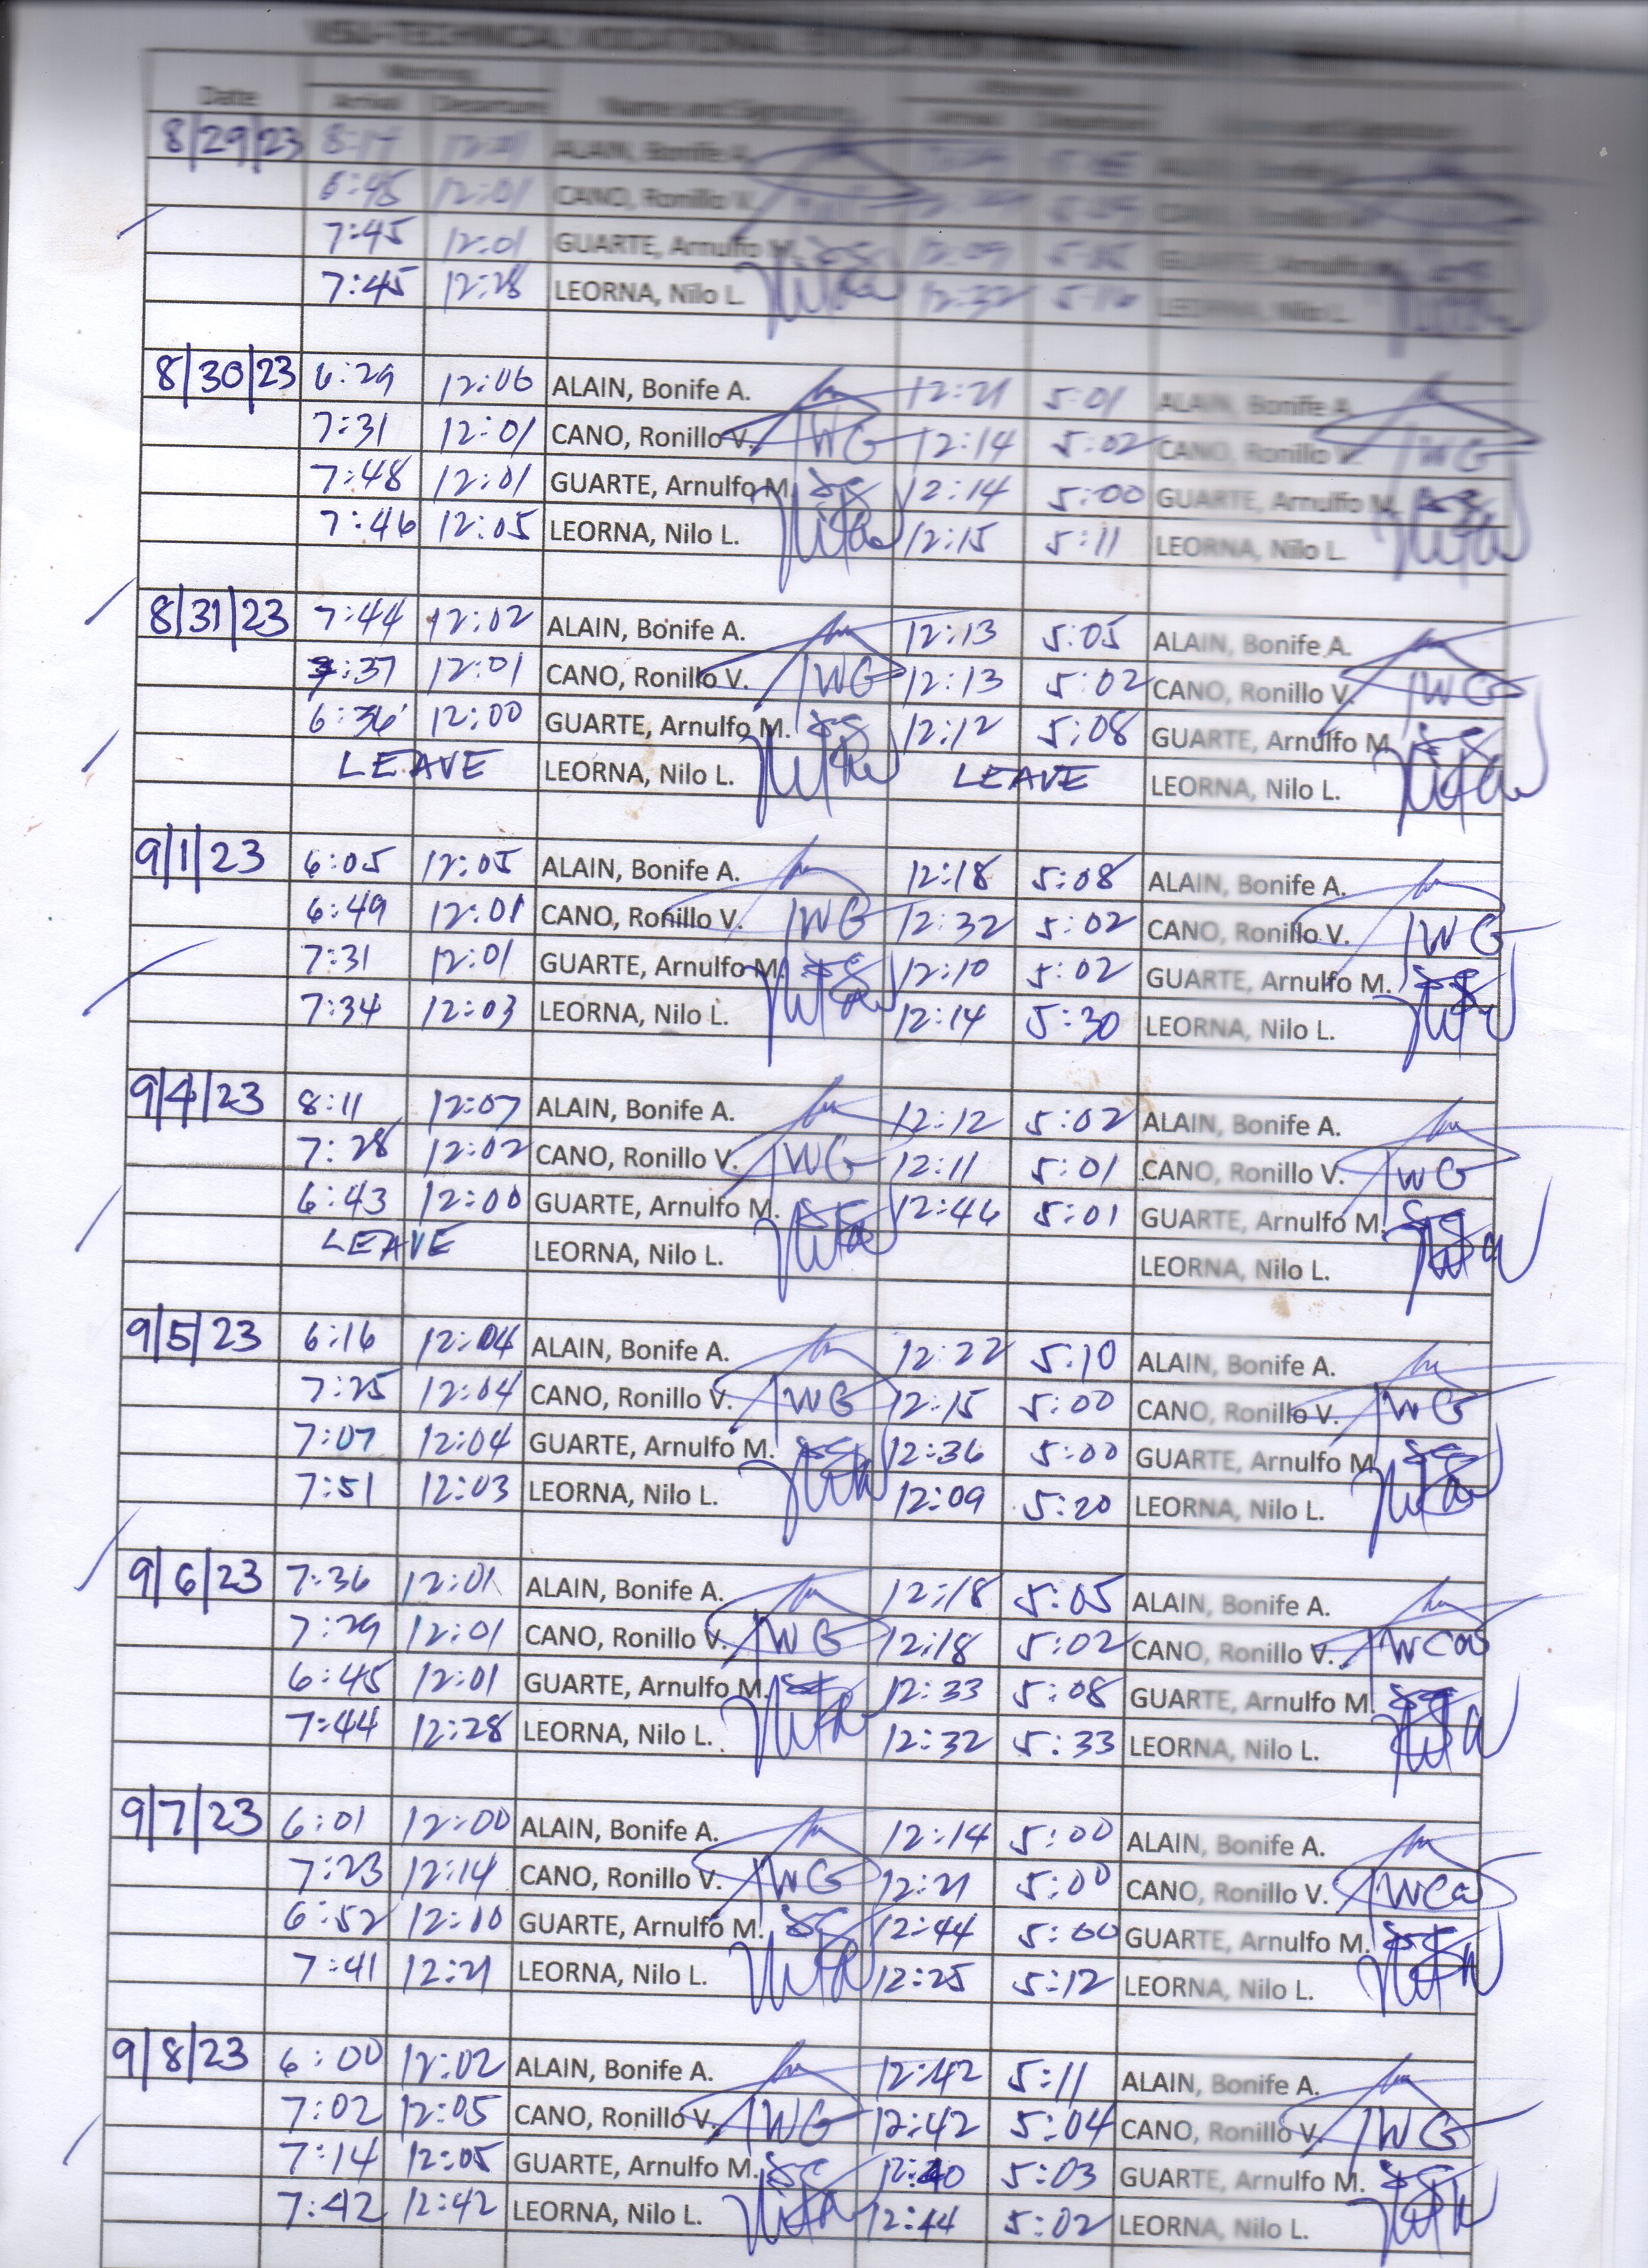 VSU-TECHNICAL VOCATIONAL EDUCATION
Morning
Date Arrival Departure Name and Signature Arrival Departure
8/29/23 8:17 12:01 ALAIN, Bonife A.
6:45 12:01 CANO, Ronillo V.
7:45 12:01 GUARTE, Arnulfo M. 12:09 GUARTE, Arnulfo M.
7:45 12:28 LEORNA, Nilo L. 12:32 5:16 LEORNA, Nilo L.
8/30/23 6:29 12:06 ALAIN, Bonife A. 12:21 5:01 ALAIN, Bonife A.
7:31 12:01 CANO, Ronillo V. 12:14 5:02 CANO, Ronillo V.
7:48 12:01 GUARTE, Arnulfo M. 12:14 5:00 GUARTE, Arnulfo M.
7:46 12:05 LEORNA, Nilo L. 12:15 5:11 LEORNA, Nilo L.
8/31/23 7:44 12:02 ALAIN, Bonife A. 12:13 5:05 ALAIN, Bonife A.
7:37 12:01 CANO, Ronillo V. 12:13 5:02 CANO, Ronillo V.
6:36 12:00 GUARTE, Arnulfo M. 12:12 5:08 GUARTE, Arnulfo M.
LEAVE LEORNA, Nilo L. LEAVE LEORNA, Nilo L.
9/1/23 6:05 12:05 ALAIN, Bonife A. 12:18 5:08 ALAIN, Bonife A.
6:49 12:01 CANO, Ronillo V. 12:32 5:02 CANO, Ronillo V.
7:31 12:01 GUARTE, Arnulfo M. 12:10 5:02 GUARTE, Arnulfo M.
7:34 12:03 LEORNA, Nilo L. 12:14 5:30 LEORNA, Nilo L.
9/4/23 8:11 12:07 ALAIN, Bonife A. 12:12 5:02 ALAIN, Bonife A.
7:28 12:02 CANO, Ronillo V. 12:11 5:01 CANO, Ronillo V.
6:43 12:00 GUARTE, Arnulfo M. 12:46 5:01 GUARTE, Arnulfo M.
LEAVE LEORNA, Nilo L. LEORNA, Nilo L.
9/5/23 6:16 12:04 ALAIN, Bonife A. 12:22 5:10 ALAIN, Bonife A.
7:25 12:04 CANO, Ronillo V. 12:15 5:00 CANO, Ronillo V.
7:07 12:04 GUARTE, Arnulfo M. 12:36 5:00 GUARTE, Arnulfo M.
7:51 12:03 LEORNA, Nilo L. 12:09 5:20 LEORNA, Nilo L.
9/6/23 7:36 12:01 ALAIN, Bonife A. 12:18 5:05 ALAIN, Bonife A.
7:29 12:01 CANO, Ronillo V. 12:18 5:02 CANO, Ronillo V.
6:45 12:01 GUARTE, Arnulfo M. 12:33 5:08 GUARTE, Arnulfo M.
7:44 12:28 LEORNA, Nilo L. 12:32 5:33 LEORNA, Nilo L.
9/7/23 6:01 12:00 ALAIN, Bonife A. 12:14 5:00 ALAIN, Bonife A.
7:23 12:14 CANO, Ronillo V. 12:21 5:00 CANO, Ronillo V.
6:52 12:00 GUARTE, Arnulfo M. 12:44 5:00 GUARTE, Arnulfo M.
7:41 12:21 LEORNA, Nilo L. 12:25 5:12 LEORNA, Nilo L.
9/8/23 6:00 12:02 ALAIN, Bonife A. 12:42 5:11 ALAIN, Bonife A.
7:02 12:05 CANO, Ronillo V. 12:42 5:04 CANO, Ronillo V.
7:14 12:05 GUARTE, Arnulfo M. 12:40 5:03 GUARTE, Arnulfo M.
7:42 12:42 LEORNA, Nilo L. 12:44 5:02 LEORNA, Nilo L.